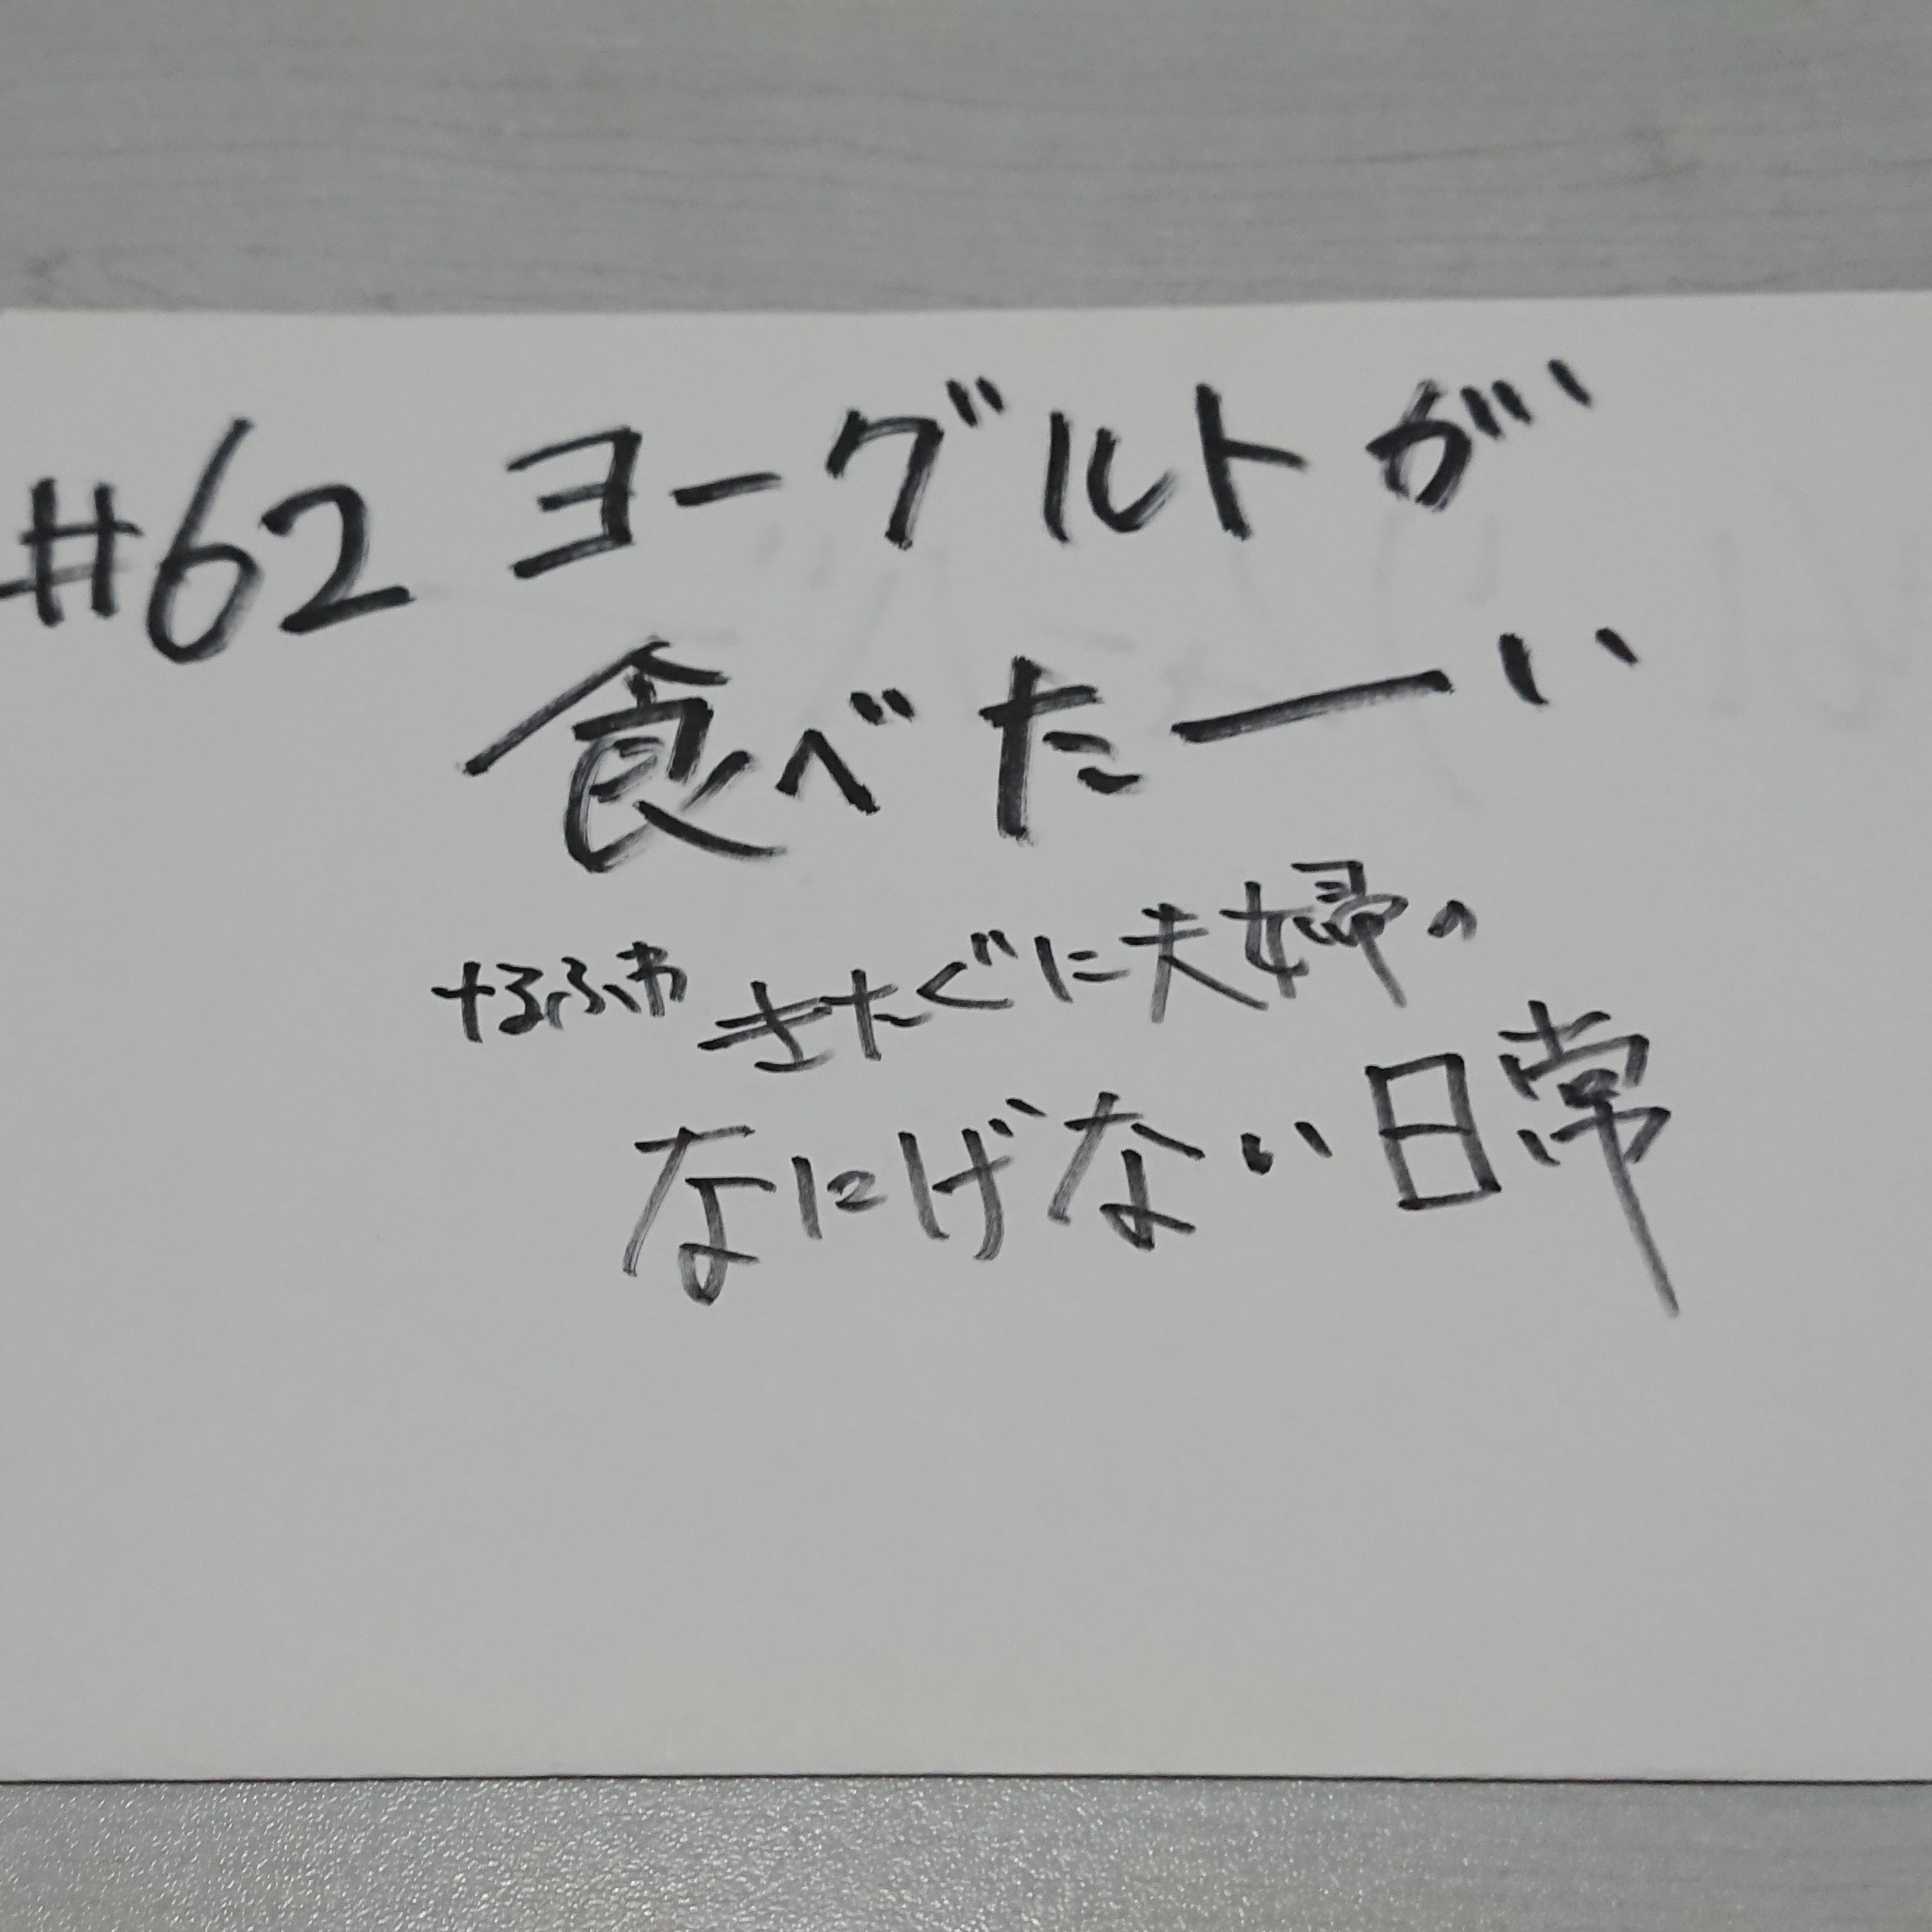 #62 ヨーグルトが
食べたーい
きたぐに夫婦の
なにげない日常